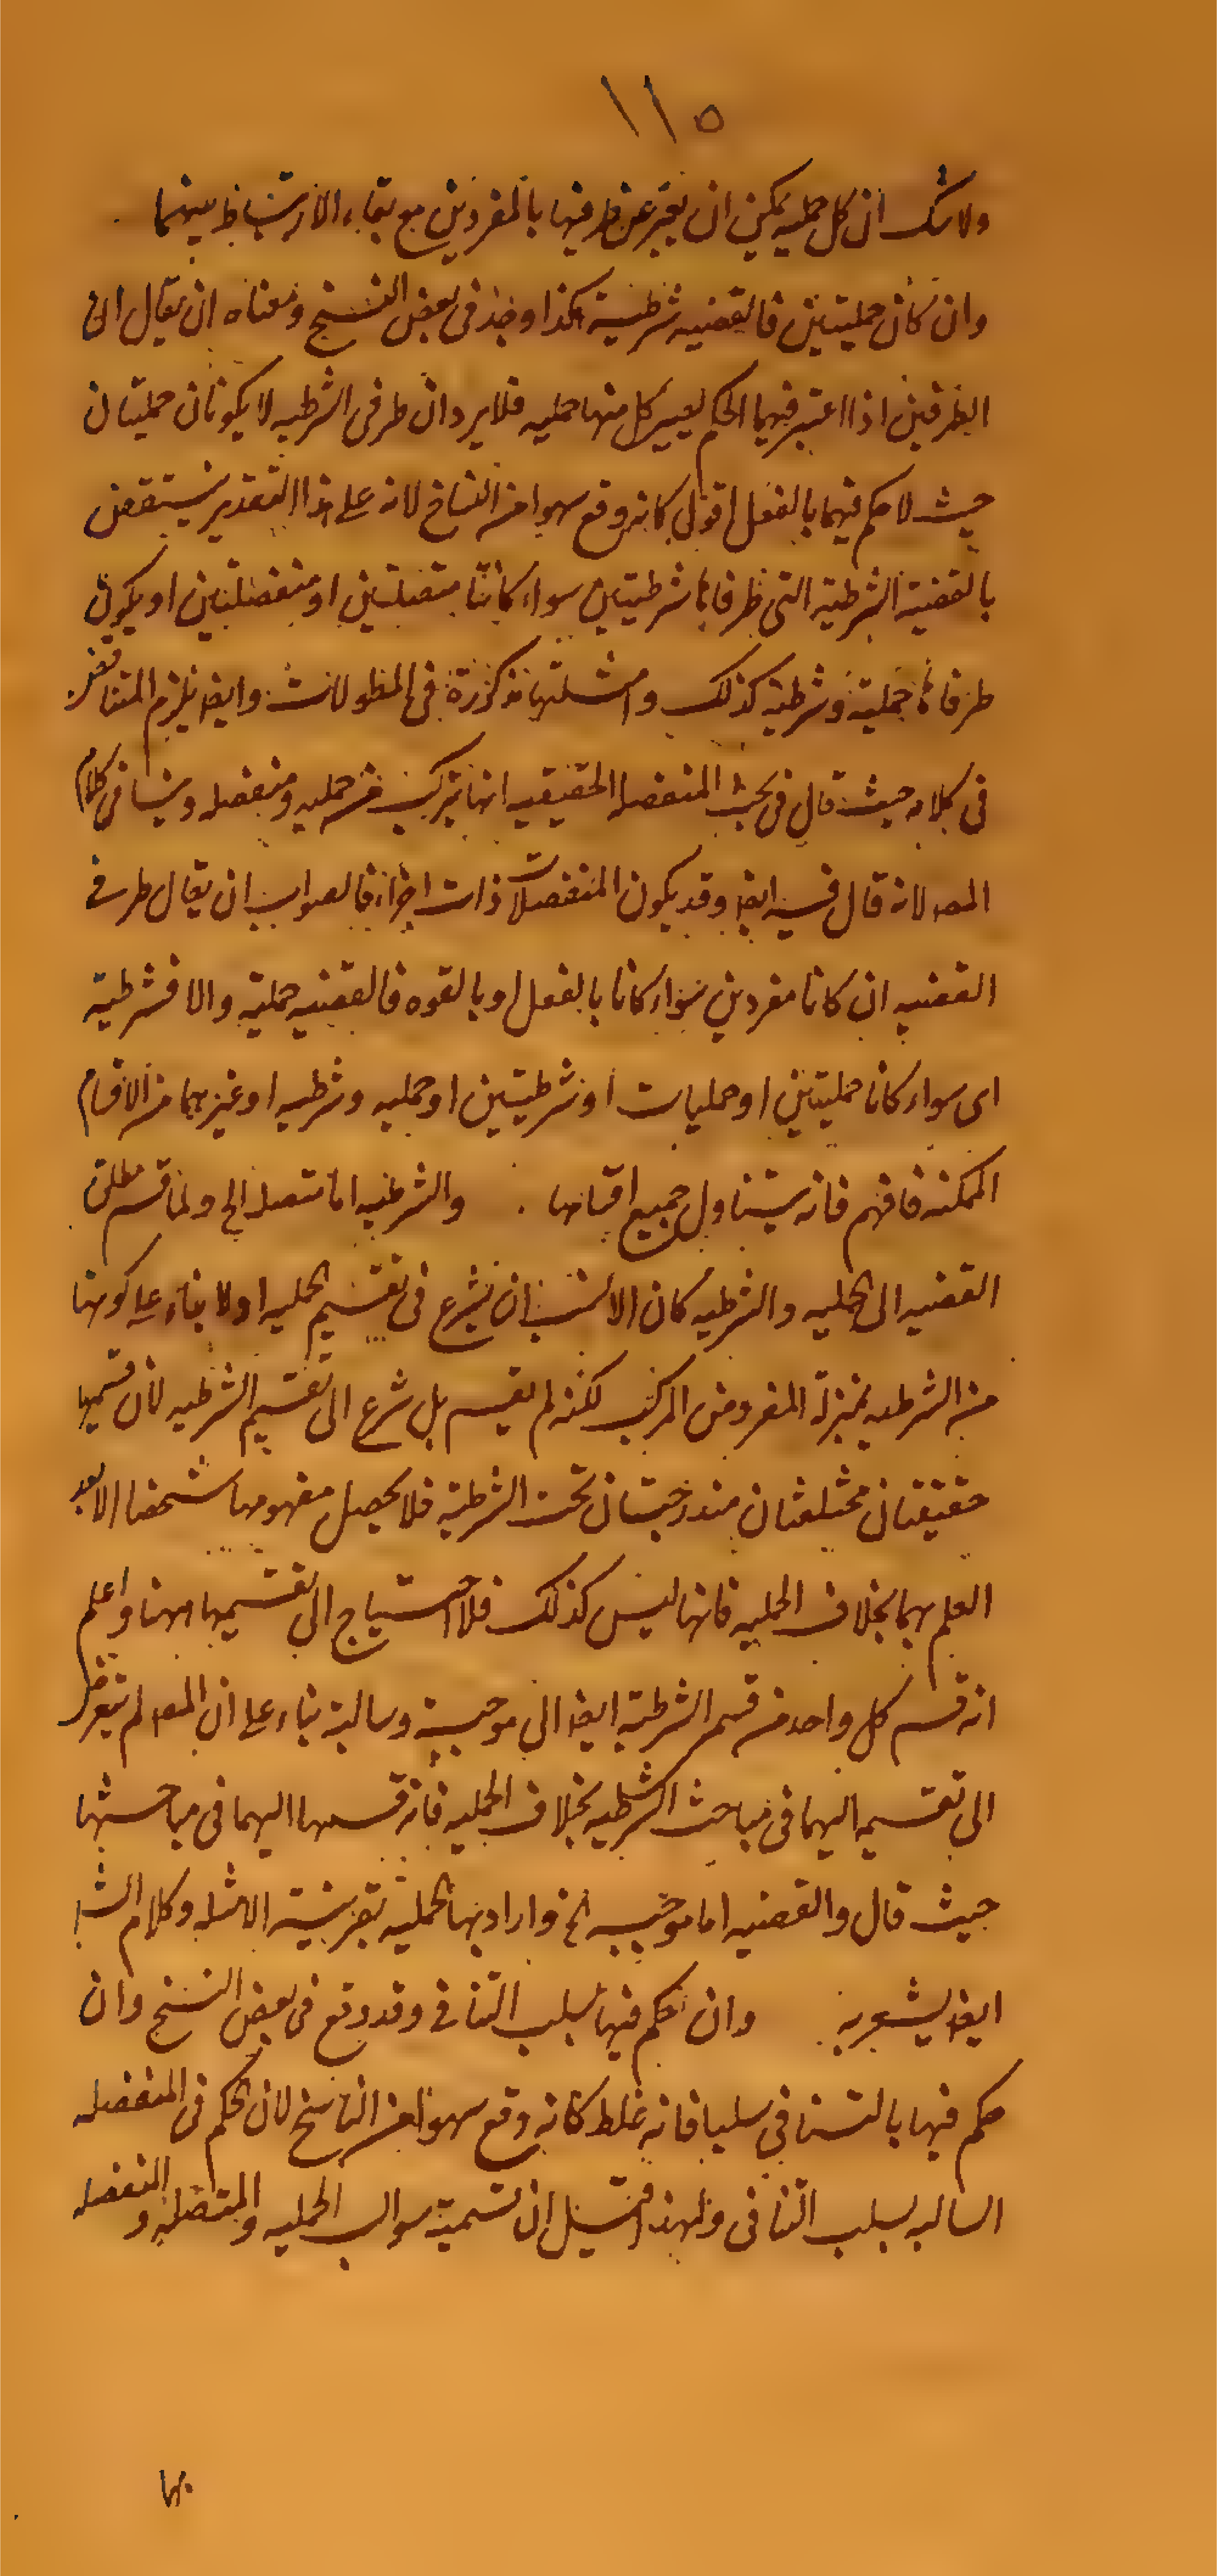 ١١٥
ولا شك ان كل حمليه يمكن ان يعبر عن طرفيها بالمفردين مع بقاء الارتباط بينهما
وان كان حمليتين فالقضيه شرطية هكذا وجد فى بعض النسخ ومعناه ان يقال ان
الطرفين اذا اعتبر فيهما الحكم يصير كل منهما حمليه فلا يرد ان طرفى الشرطيه لا يكونان حمليتان
حيث لا حكم فيهما بالفعل اقول كانه وقع سهوا من النساخ لانه على هذا التقدير ينتقض
بالقضية الشرطية التى طرفاها شرطيتين سواء كانتا متصلتين او منفصلتين او يكون
طرفاها حملية وشرطية كذلك وامثلتها مذكورة فى المطولات وايضا يلزم التناقض
فى كلامه حيث قال فى بحث المنفصله الحقيقيه انها تتركب من حمليه ومنفصله وينافى كلام
المصـ لانه قال فيه ايضا وقد يكون المنفصلات ذات اجزاء فالصواب ان يقال طرفى
القضيه ان كانا مفردين سواء كانا بالفعل او بالقوه فالقضيه حملية والا فشرطية
اى سواء كانا حمليتين او حمليات او شرطيتين او حمليه وشرطيه او غيرهما من الاقسام
الممكنه فافهم فانه يتناول جميع اقسامها والشرطيه اما متصله الخ ولما قسم مطلق
القضيه الى الحمليه والشرطيه كان الانسب ان يشرع فى تقسيم الحمليه اولا بناء على كونها
من الشرطيه بمنزلة المفرد من المركب لكنه لم يقسم بل شرع الى تقسيم الشرطيه لان قسميها
حقيقتان مختلفتان مندرجتان تحت الشرطية فلا يحصل مفهومها الا بعد
العلم بهما بخلاف الحمليه فانها ليس كذلك فلا احتياج الى تقسيمها ههنا واعلم
انه قسم كل واحد من قسم الشرطية ايضا الى موجبة وسالبة بناء على ان المصـ لم يتعرض
الى تقسيمه اليهما فى مباحث الشرطيه بخلاف الحمليه فانه قسمها اليهما فى مباحثها
حيث قال والقضيه اما موجبه الخ واراد بها الحملية بقرينة الامثله وكلام الشـ
ايضا يشعر به وان حكم فيها بسلب التنافى وقد وقع فى بعض النسخ وان
حكم فيها بالتنافى سلبا فانه غلط كانه وقع سهوا من الناسخ لان الحكم فى المنفصله
السالبه بسلب التنافى ولهذا قيل ان تسمية سوالب الحمليه والمتصله والمنفصله
بها